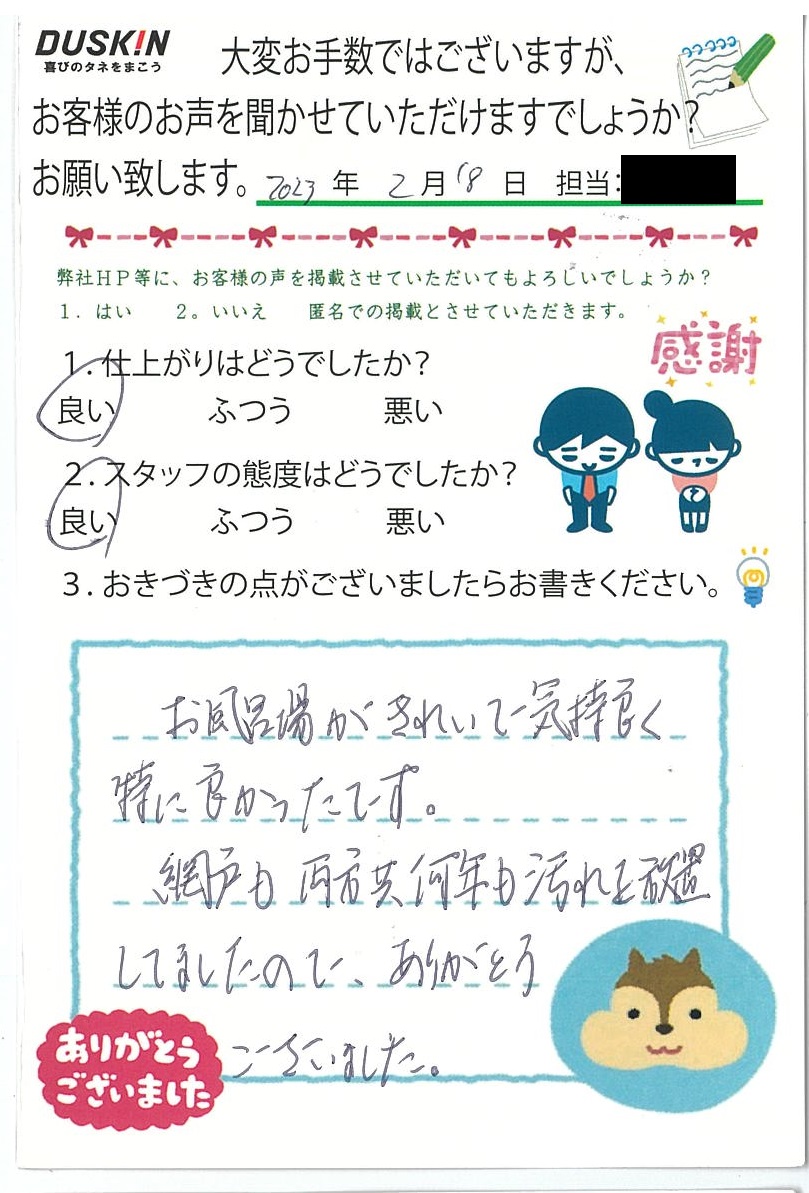 DUSK!N
喜びのタネをまこう
大変お手数ではございますが、
お客様のお声を聞かせていただけますでしょうか?
お願い致します。 2023 年 2 月 18 日 担当:
弊社HP等に、お客様の声を掲載させていただいてもよろしいでしょうか?
1. はい 2。いいえ 匿名での掲載とさせていただきます。
感謝
1. 仕上がりはどうでしたか?
良い ふつう 悪い
2. スタッフの態度はどうでしたか?
良い ふつう 悪い
3. おきづきの点がございましたらお書きください。
お風呂場がきれいで気持良く
特に良かったです。
網戸も両方共何年も汚れを放置
してましたので、ありがとう
ございました。
ありがとう
ございました